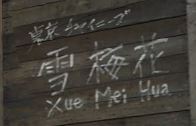 東京 チャイニーズ
雪梅花
Xue Mei Hua